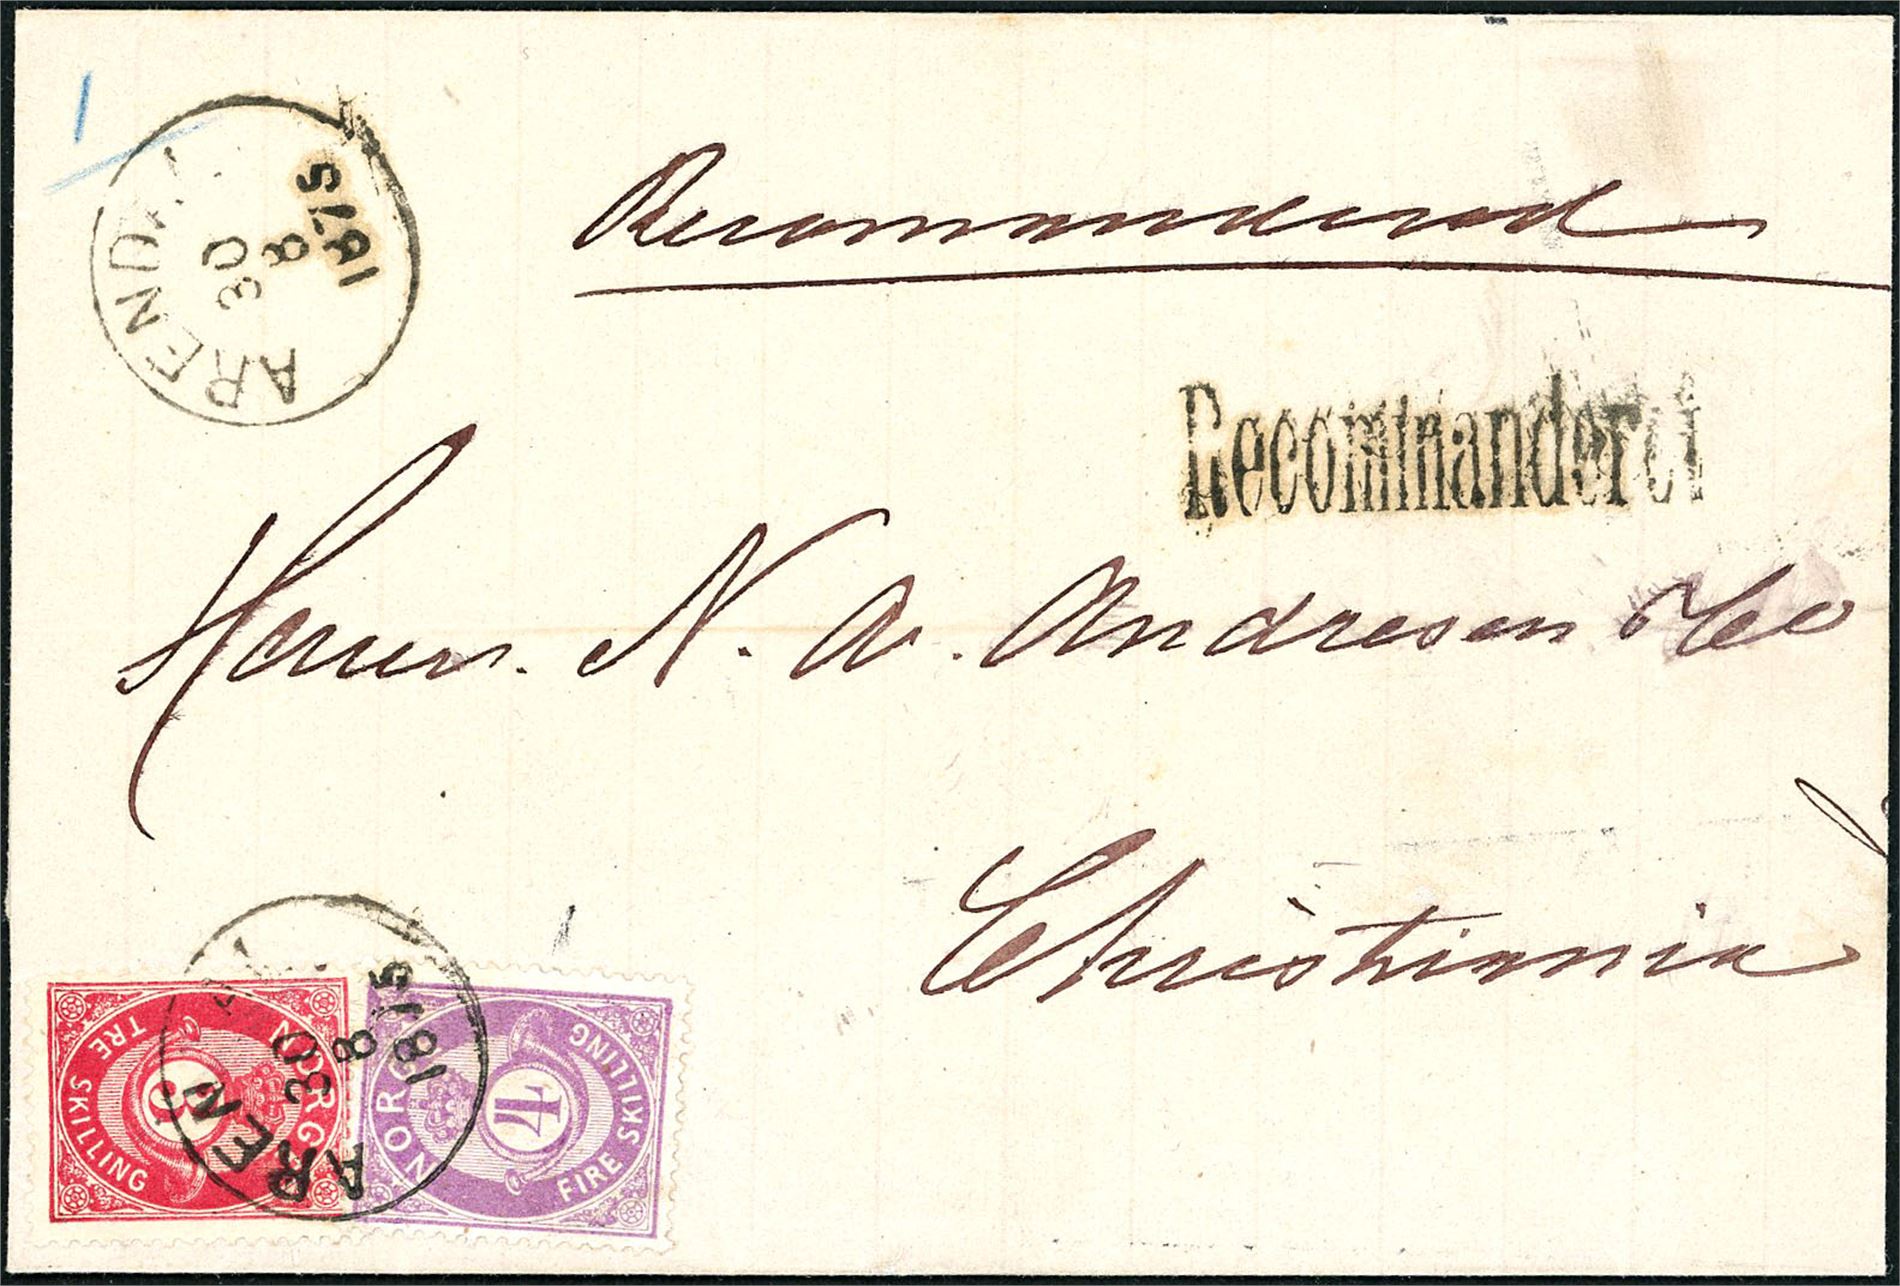 ARENDAL
30
8
1875
Recommanderes
Recommanderet
Herrer. N. A. Andresen & Co
Christiania
NORGE
TRE SKILLING
3
NORGE
FIRE SKILLING
4
AREN
30
8
1875